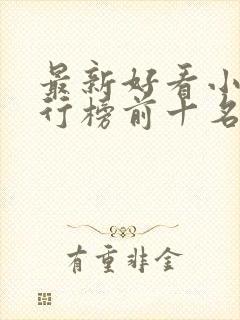 最新好看小
行榜前十名
有重非金